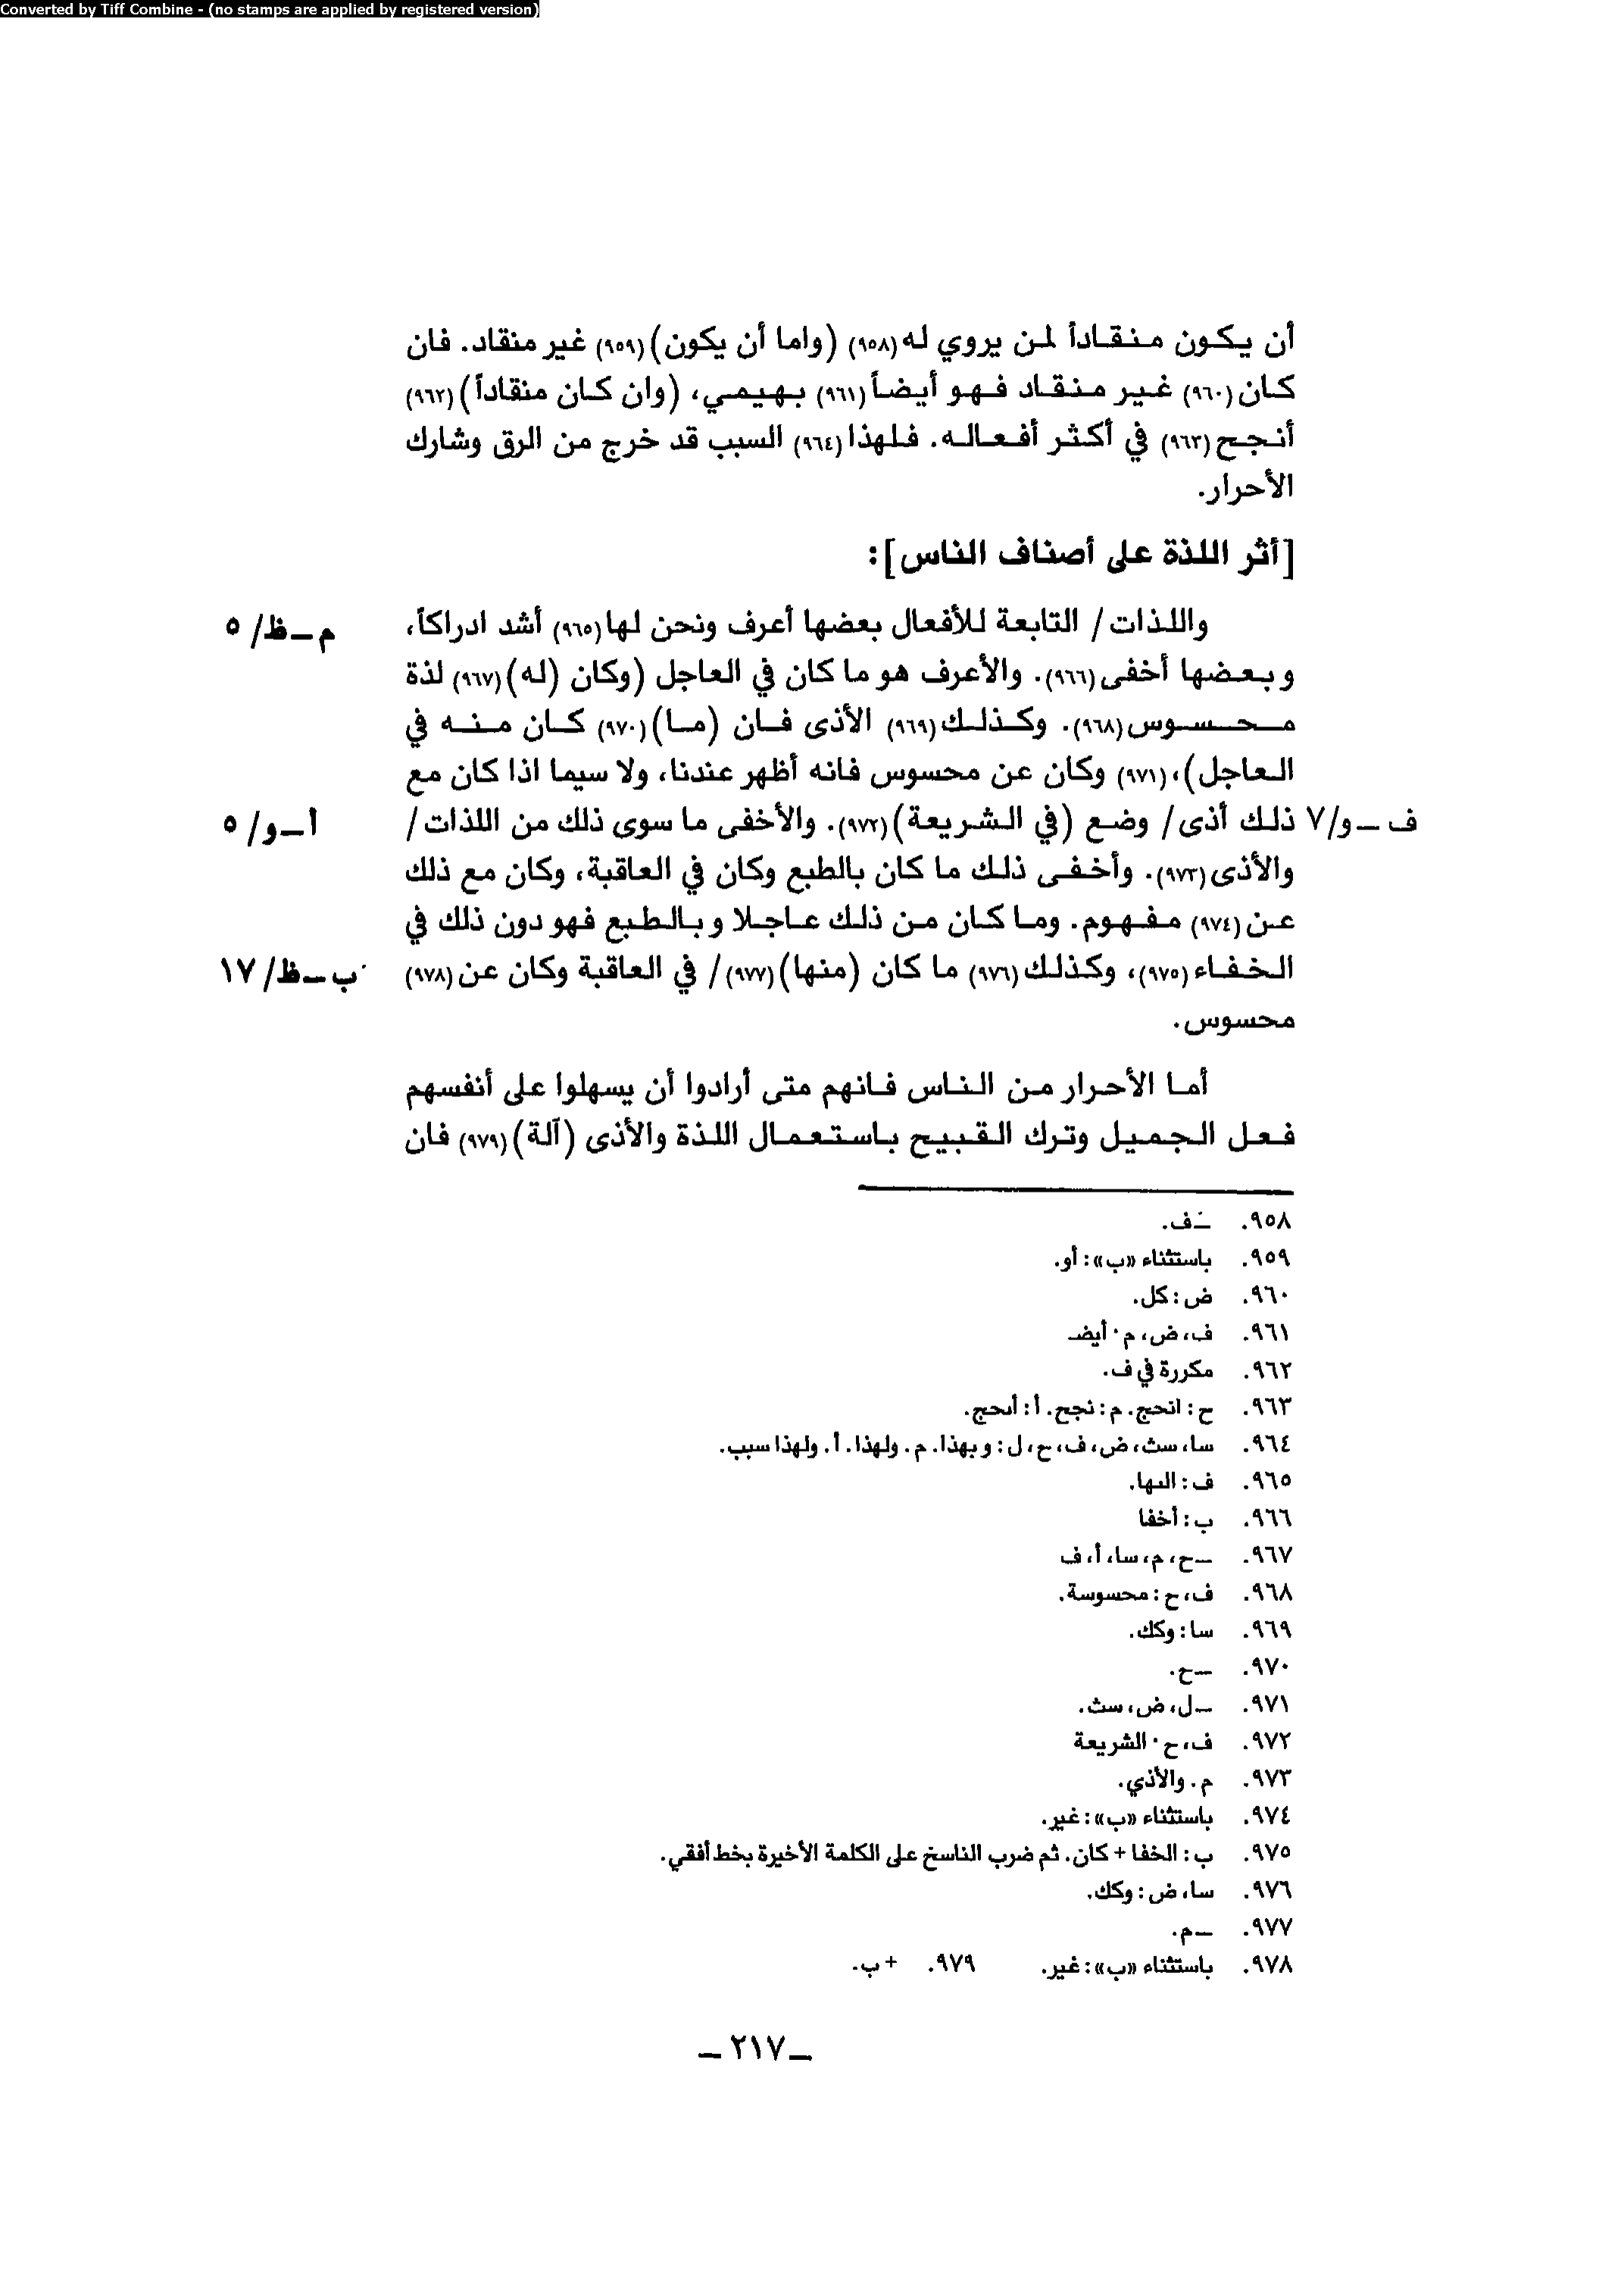 Converted by Tiff Combine - (no stamps are applied by registered version)
أن يكون منقاداً لمن يروي له(٩٥٨) (واما أن يكون)(٩٥٩) غير منقاد. فان
كان(٩٦٠) غير منقاد فهو أيضاً(٩٦١) بهيمي، (وان كان منقاداً)(٩٦٢)
أنجح(٩٦٣) في أكثر أفعاله. فلهذا(٩٦٤) السبب قد خرج من الرق وشارك
الأحرار.
[أثر اللذة على أصناف الناس]:
واللذات/ التابعة للأفعال بعضها أعرف ونحن لها(٩٦٥) أشد ادراكاً، م ــ ظ/ ٥
وبعضها أخفى(٩٦٦). والأعرف هو ما كان في العاجل (وكان (له)(٩٦٧) لذة
محسوس(٩٦٨). وكذلك(٩٦٩) الأذى فان (ما)(٩٧٠) كان منه في
العاجل)،(٩٧١) وكان عن محسوس فانه أظهر عندنا، ولا سيما اذا كان مع
ف ــ و/٧ ذلك أذى/ وضع (في الشريعة)(٩٧٢). والأخفى ما سوى ذلك من اللذات/ أ ــ و/ ٥
والأذى(٩٧٣). وأخفى ذلك ما كان بالطبع وكان في العاقبة، وكان مع ذلك
عن(٩٧٤) مفهوم. وما كان من ذلك عاجلا وبالطبع فهو دون ذلك في
الخفاء(٩٧٥)، وكذلك(٩٧٦) ما كان (منها)(٩٧٧)/ في العاقبة وكان عن(٩٧٨) ب ــ ظ/ ١٧
محسوس.
أما الأحرار من الناس فانهم متى أرادوا أن يسهلوا على أنفسهم
فعل الجميل وترك القبيح باستعمال اللذة والأذى (آلة)(٩٧٩) فان
٩٥٨. ــ ف.
٩٥٩. باستثناء «ب»: أو.
٩٦٠. ض: كل.
٩٦١. ف، ض، م٠ أيضـ
٩٦٢. مكررة في ف.
٩٦٣. ح: انحج. م: نجح. أ: أىحج.
٩٦٤. سا، سث، ض، ف، ح، ل: وبهذا. م. ولهذا. أ. ولهذا سبب.
٩٦٥. ف: الىها.
٩٦٦. ب: أخفا
٩٦٧. ــ ح، م، سا، أ، ف
٩٦٨. ف، ح: محسوسة.
٩٦٩. سا: وكك.
٩٧٠. ــ ح.
٩٧١. ــ ل، ض، سث.
٩٧٢. ف، ح٠ الشريعة
٩٧٣. م. والأذي.
٩٧٤. باستثناء «ب»: غير.
٩٧٥. ب: الخفا + كان. ثم ضرب الناسخ على الكلمة الأخيرة بخط أفقي.
٩٧٦. سا، ض: وكك.
٩٧٧. ــ م.
٩٧٨. باستثناء «ب»: غير. ٩٧٩. + ب.
ــ ٢١٧ ــ